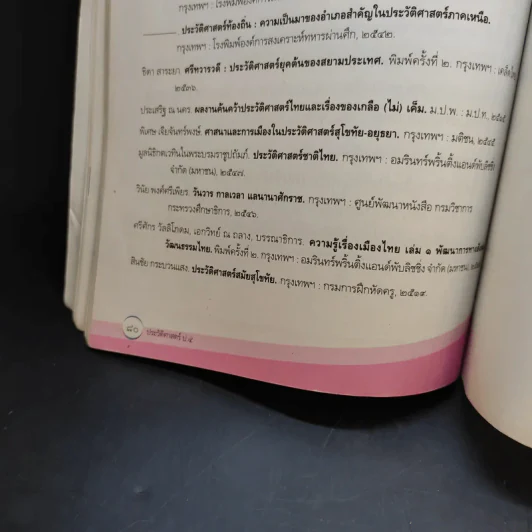 กรุงเทพฯ : โรงพิมพ์องค์การ
________ ประวัติศาสตร์ท้องถิ่น : ความเป็นมาของอำเภอสำคัญในประวัติศาสตร์ภาคเหนือ.
กรุงเทพฯ : โรงพิมพ์องค์การสงเคราะห์ทหารผ่านศึก, ๒๕๔๒.
ธิดา สาระยา. ศรีทวารวดี : ประวัติศาสตร์ยุคต้นของสยามประเทศ. พิมพ์ครั้งที่ ๒. กรุงเทพฯ :
๒๕๓๖.
ประเสริฐ ณ นคร. ผลงานค้นคว้าประวัติศาสตร์ไทยและเรื่องของเกลือ (ไม่) เค็ม. ม.ป.พ. : ม.ป.ท.,
พิเศษ เจียจันทร์พงษ์. ศาสนาและการเมืองในประวัติศาสตร์สุโขทัย-อยุธยา. กรุงเทพฯ : มติชน, ๒๕๔๕
มูลนิธิกตเวทินในพระบรมราชูปถัมภ์. ประวัติศาสตร์ชาติไทย. กรุงเทพฯ : อมรินทร์พริ้นติ้งแอนด์พับลิชชิ่ง
จำกัด (มหาชน), ๒๕๔๗.
วินัย พงศ์ศรีเพียร. วันวาร กาลเวลา แลนานาศักราช. กรุงเทพฯ : ศูนย์พัฒนาหนังสือ กรมวิชาการ
กระทรวงศึกษาธิการ, ๒๕๔๖.
ศรีศักร วัลลิโภดม, เอกวิทย์ ณ ถลาง, บรรณาธิการ. ความรู้เรื่องเมืองไทย เล่ม ๑ พัฒนาการทาง
วัฒนธรรมไทย. พิมพ์ครั้งที่ ๒. กรุงเทพฯ : อมรินทร์พริ้นติ้งแอนด์พับลิชชิ่ง จำกัด (มหาชน),
สินชัย กระบวนแสง. ประวัติศาสตร์สมัยสุโขทัย. กรุงเทพฯ : กรมการฝึกหัดครู, ๒๕๑๙.
๘๐ ประวัติศาสตร์ ป.๕